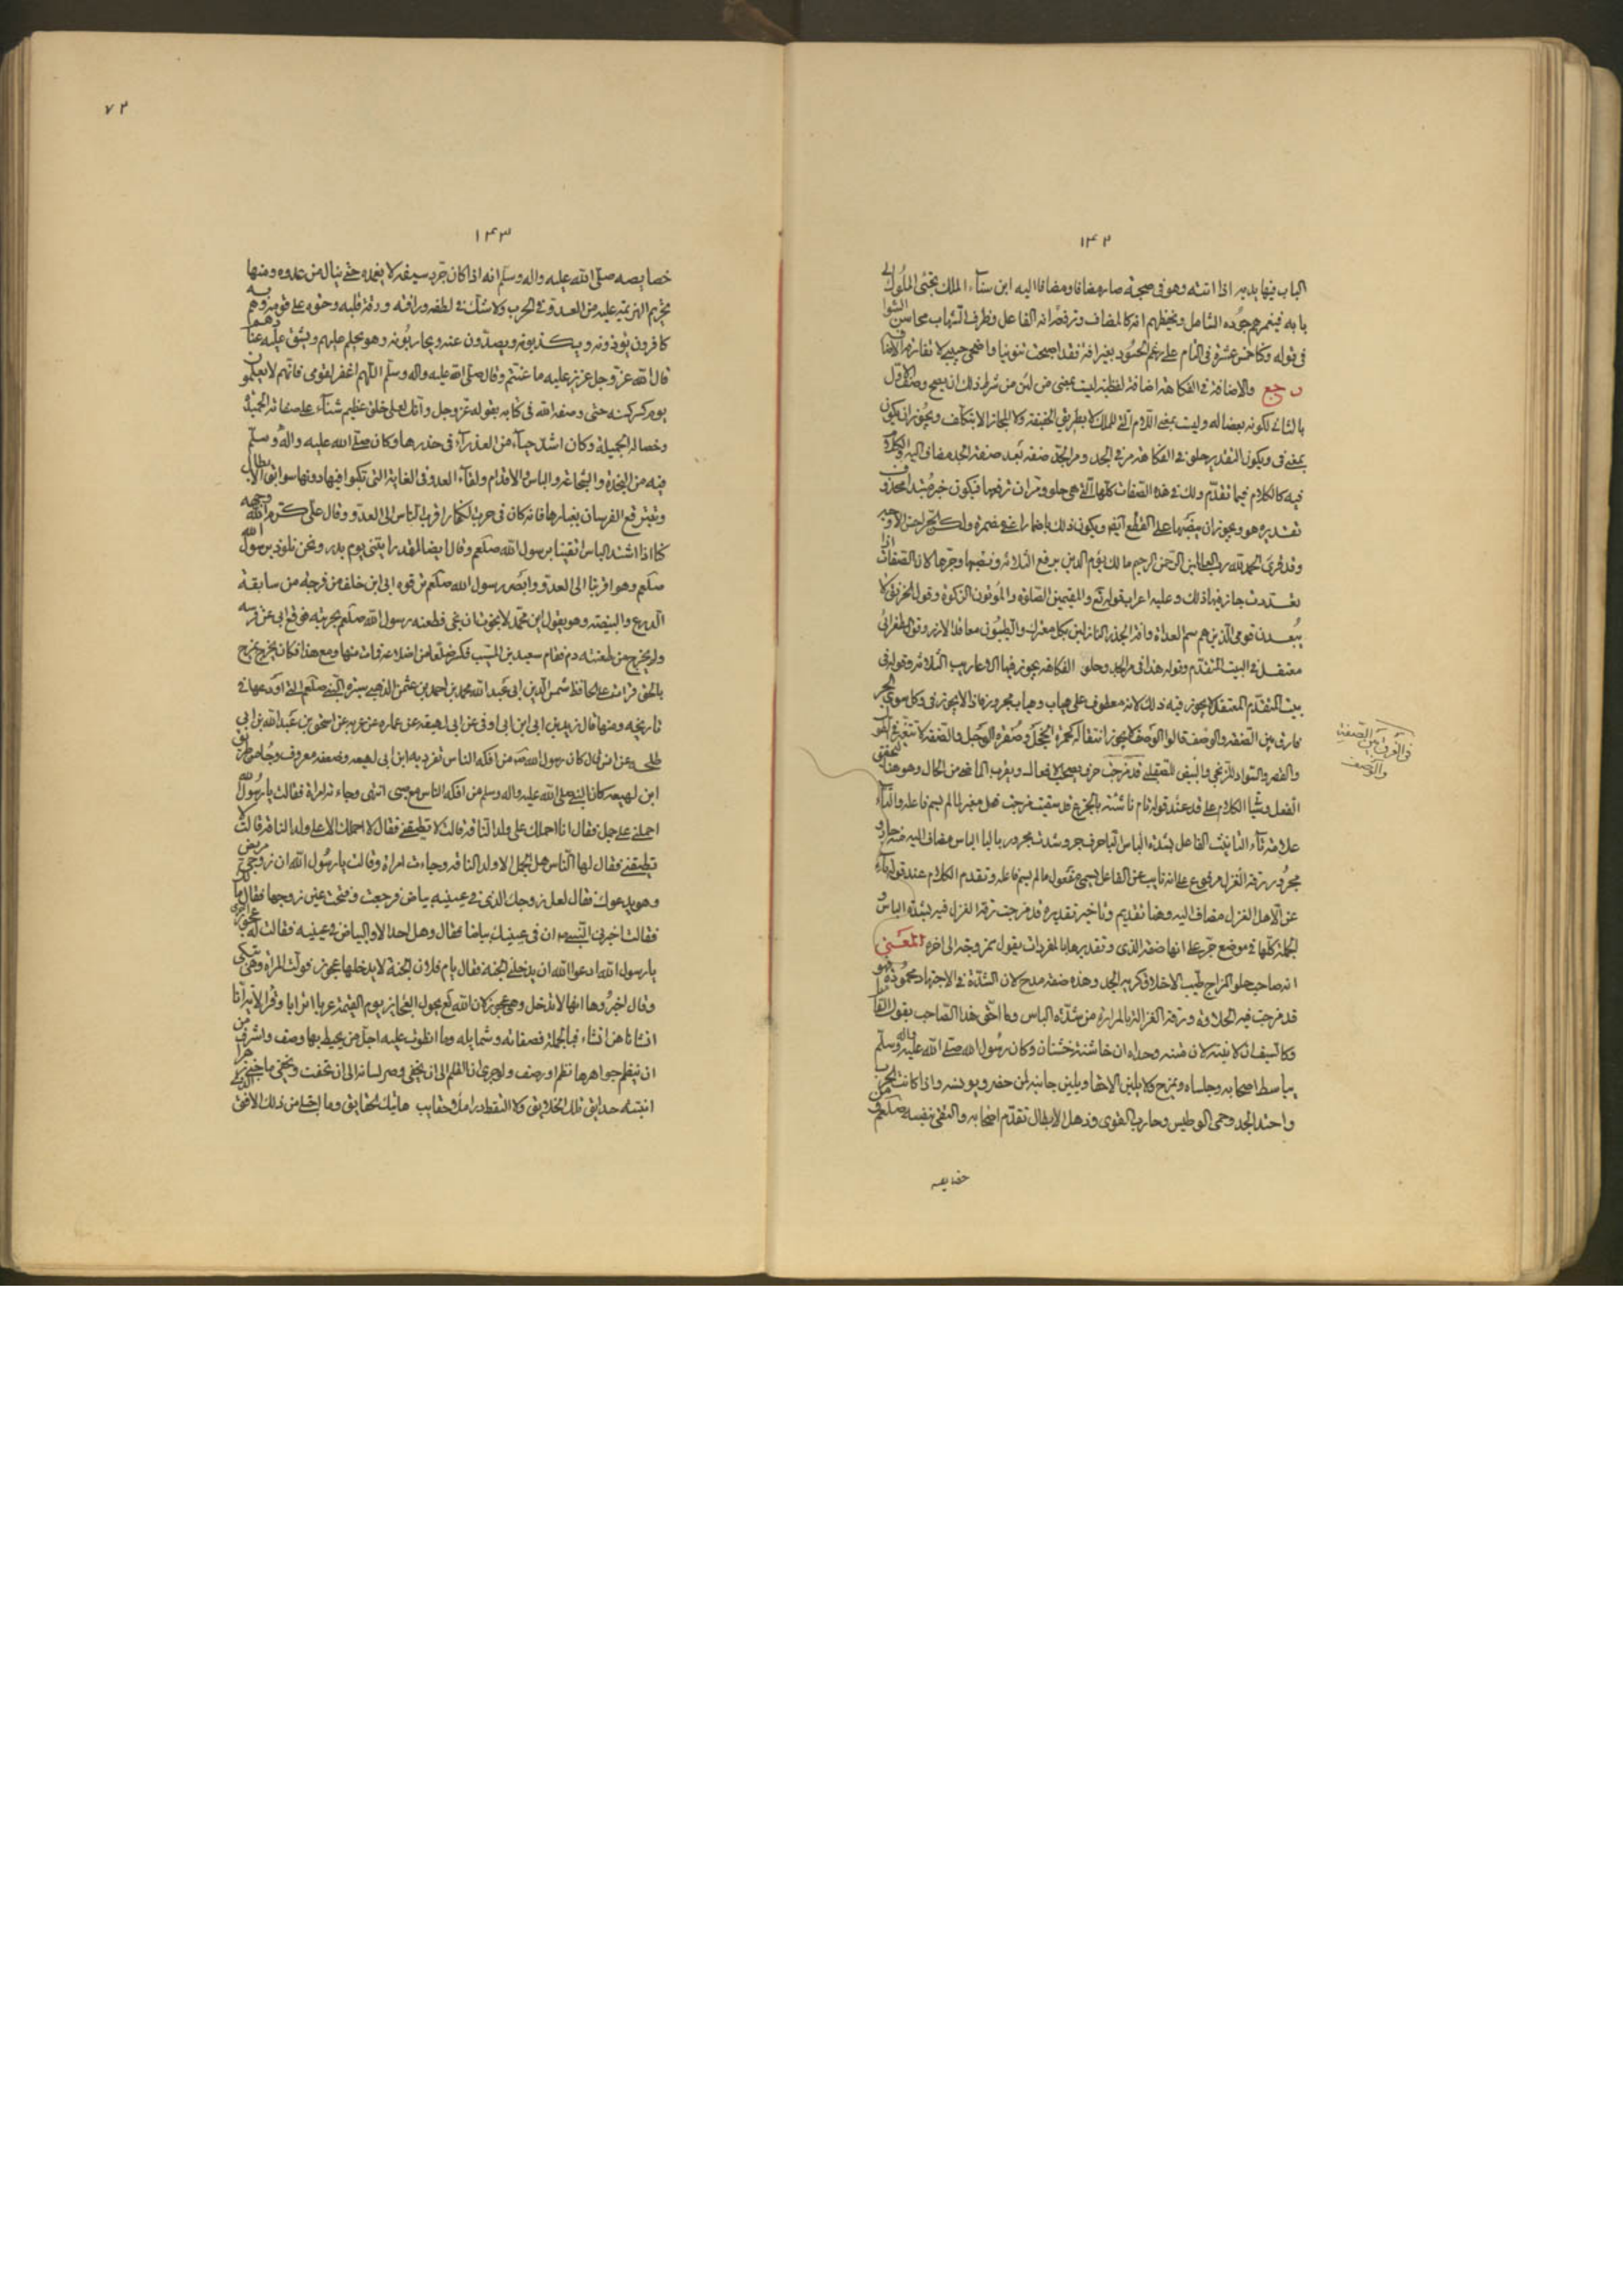 ١٤٢
الباب فيها بديه اذا اتته وهو فى صحبة صار مضافا ومضافا اليه ابن سناء الملك يجتنى الملوك الى
بابه فيغمرهم جوده الشامل
فى قوله وكنا خمس عشرة فى التئام على رغم الحسود بغير افة فقد اصبحت تنوينا واضحى حبيبى لا تفارقه الاضافة
رجع والاضافة فى الفكاهة اضافة لفظية ليست بمعنى من لان من شرط ذلك ان يصح وصف الاول
بالثانى لكونه بعضا له وليست بمعنى اللام التى للملك لا بطريق الحقيقة ولا المجاز الا بتكلف ويجوز ان يكون
بمعنى فى ويكون التقدير حلو فى الفكاهة مر فى الجد ومر الجد صفة بعد صفة الجد مضاف اليه والكلام
فيه كالكلام فيما تقدم ولك فى هذه الصفات كلها التى هى حلو ومر ان ترفعها فيكون خبر مبتدا محذوف
تقديره هو ويجوز ان ينصبها على القطع ايضا ويكون ذلك باضمار اعنى مضمرة ولك الجر اجتز الاوجه
وقد قرئ الحمد لله رب العالمين الرحمن الرحيم مالك يوم الدين برفع الثلاثة ونصبها وجرها لان الصفات اذا
تعددت جاز فيها ذلك وعليه اعراب قوله تع والمقيمين الصلوة والمؤتون الزكوة وقول الخرنق لا
يبعدن قومى الذين هم سم العداة وافة الجذر النازلين بكل معترك والطيبون معاقد الازر وقول الطغرائى
معتقل فى البيت المتقدم وقوله هنا فى مر الجد وحلو الفكاهة يجوز فيها الاعاريب الثلاثة وقوله فى
بيت المتقدم المعتقل لا يجوز فيه ذلك لانه معطوف على هياب وهياب مجرور فاذا لا يجوز فى وكل سوى الجر
فارق بين الصفة والوصف قالوا الوصف لا يجوز انتقاله كحمرة الخجل وصفرة الوجل والصفة لا تتغير كالطول
والقصر والسواد للزنجى والبيض للصقلبى قد مزجت حرف يصحب الافعال ويقرب الماضى من الحال وهو هنا لتحقيق
الفعل وشيا الكلام على قد عند قوله نام ناشئة بالجزع قد سقيت مزجت فعل مغير لما لم يسم فاعله والتاء
علامة تاء التانيث الفاعل بشدة الباس الباحرف جر وشدت مجرور بالبا الباس مضاف اليه منه جار و
مجرور رقة الغزل مرفوع على انه نايب عن الفاعل يسمى مفعول ما لم يسم فاعله وتقدم الكلام عند قوله ناء
عن الاهل الغزل مضاف اليه وهنا تقديم وتاخير تقديره قد مزجت رقة الغزل فيه بشدة الباس و
الجملة كلها فى موضع جر على انها صفة لذى وتقديرها بالمفردات يقول ممزوجة الى اخره المعنى
انه صاحب حلو المزاح طيب الاخلاق كريه الجد وهذه صفة مدح لان الشدة فى الاجتهاد محمودة فهو
قد مزجت فيه الحلاوة ورقة الغزل بالمرارة من شدة الباس وما احق هذا الصاحب بقول القائل
وكالسيف ان لاينته لان متنه وحداه ان خاشنته خشنان وكان رسول الله صلى الله عليه واله وسلم
يباسط اصحابه وجلساه ويمزح ولا يلين الا حقا ويلين جانبه لمن حضره ويونسه واذا كانت الحرب
واحتد الجد وحمى الوطيس وحارب القوى وذهل الابطال تقدم اصحابه والتقى بنفسه صلعم فمن
خصايصه
فى الفرق بين الصفة
والوصف
٧٢
١٤٣
خصايصه صلى الله عليه واله وسلم انه اذا كان جرد سيفه لا يغمده حتى ينال من عدوه ومنها
تحريم الهزيمة عليه من العدو فى الحرب ولا شك فى لطفه ورافته ورقة قلبه وحنوه على قومه وهم به
كافرون يوذونه ويكذبونه ويصدون عنه ويحاربونه وهو يحلم عليهم ويشق عليه عنادهم
قال الله عز وجل عزيز عليه ما عنتم وقال صلى الله عليه واله وسلم اللهم اغفر لقومى فانهم لا يعلمون
يوم كسر سنه حتى وصفه الله فى كتابه بقوله عز وجل وانك لعلى خلق عظيم ثناء على صفاته الحميدة
وخصاله الجميلة وكان اشد حياء من العذراء فى خدرها وكان صلى الله عليه واله وسلم
فيه من النجدة والشجاعة والباس والاقدام ولقاء العدو فى الغاية التى تكبوا فيها دونها سوابق الابطال
وتعثر قع الفرسان بغبارها فانه كان فى حرب الكفار اقرب الناس الى العدو وقال على كرم الله وجهه
كنا اذا اشتد الباس اتقينا برسول الله صلعم وقال ايضا لقد رايتنى يوم بدر ونحن نلوذ برسول الله
صلعم وهو اقربنا الى العدو وابصر رسول الله صلعم ترقوه ابى ابن خلف من فرجة من سابغة
الدرع والبيضة وهو يقول اين محمد لا نجوت ان نجى فطعنه رسول الله صلعم بحربته فوقع ابى عن فرسه
ولم يخرج من طعنته دم فقام سعيد بن المسيب فكسر ضلعا من اضلاعه فمات منها ومع هذا فكان يمزح يمزح
بالحق قرات على الحافظ شمس الدين ابى عبد الله محمد بن احمد بن عثمن الذهبى سيرة النبى صلعم التى اودعها فى
تاريخه ومنها قال زيد بن ابى ابن ابى اوفى عن ابى لهيعه عن عماره بن غزيه عن اسحق بن عبد الله بن ابى
طلحه عن انس قال كان رسول الله صلعم من افكه الناس تفرد به ابن ابى لهيعه وضعفه معروف وجا من طريق
ابن لهيعه كان النبى صلى الله عليه واله وسلم من افكه الناس مع صبى انتهى وجاءته امراة فقالت يا رسول الله
احملنى على جمل فقال انا احملك على ولد الناقة قالت لا تطيقنى فقال لا احملك الا على ولد الناقة قالت لا
تطيقنى فقال لها الناس هل الجمل الا ولد الناقة وجاءت امراة وقالت يا رسول الله ان زوجى مريض
وهو يدعوك فقال لعل زوجك الذى فى عينيه بياض فرجعت وفتحت عين زوجها فقال مالك
فقالت اخبرنى النبى صلعم ان فى عينيك بياضا فقال وهل احد الا والبياض فى عينيه فقالت له عجوز اخرى
يا رسول الله ادعو الله ان يدخلنى الجنة فقال يام فلان الجنة لا يدخلها عجوز فولت المراة وهى تبكى
وقال اخبروها انها لا تدخل وهى عجوز لان الله تع يحول العجايز يوم القيمة عربا اترابا وقرا الاية انا
انشاناهن انشاء فبالجملة فصفاته وشمايله وما انطوت عليه اجل من يحيط بها وصف واشرف من
ان ينظم جواهرها نظم او رصف ولو جرى لذ القلم الى ان يحفى وصر لسانه الى ان يخفت ويخفى ما جنى جزا
انبتته حدايق تلك الخلايق ولا التقط در املا حقايب هاتيك الحقايق وما ابقى من ذلك الافق